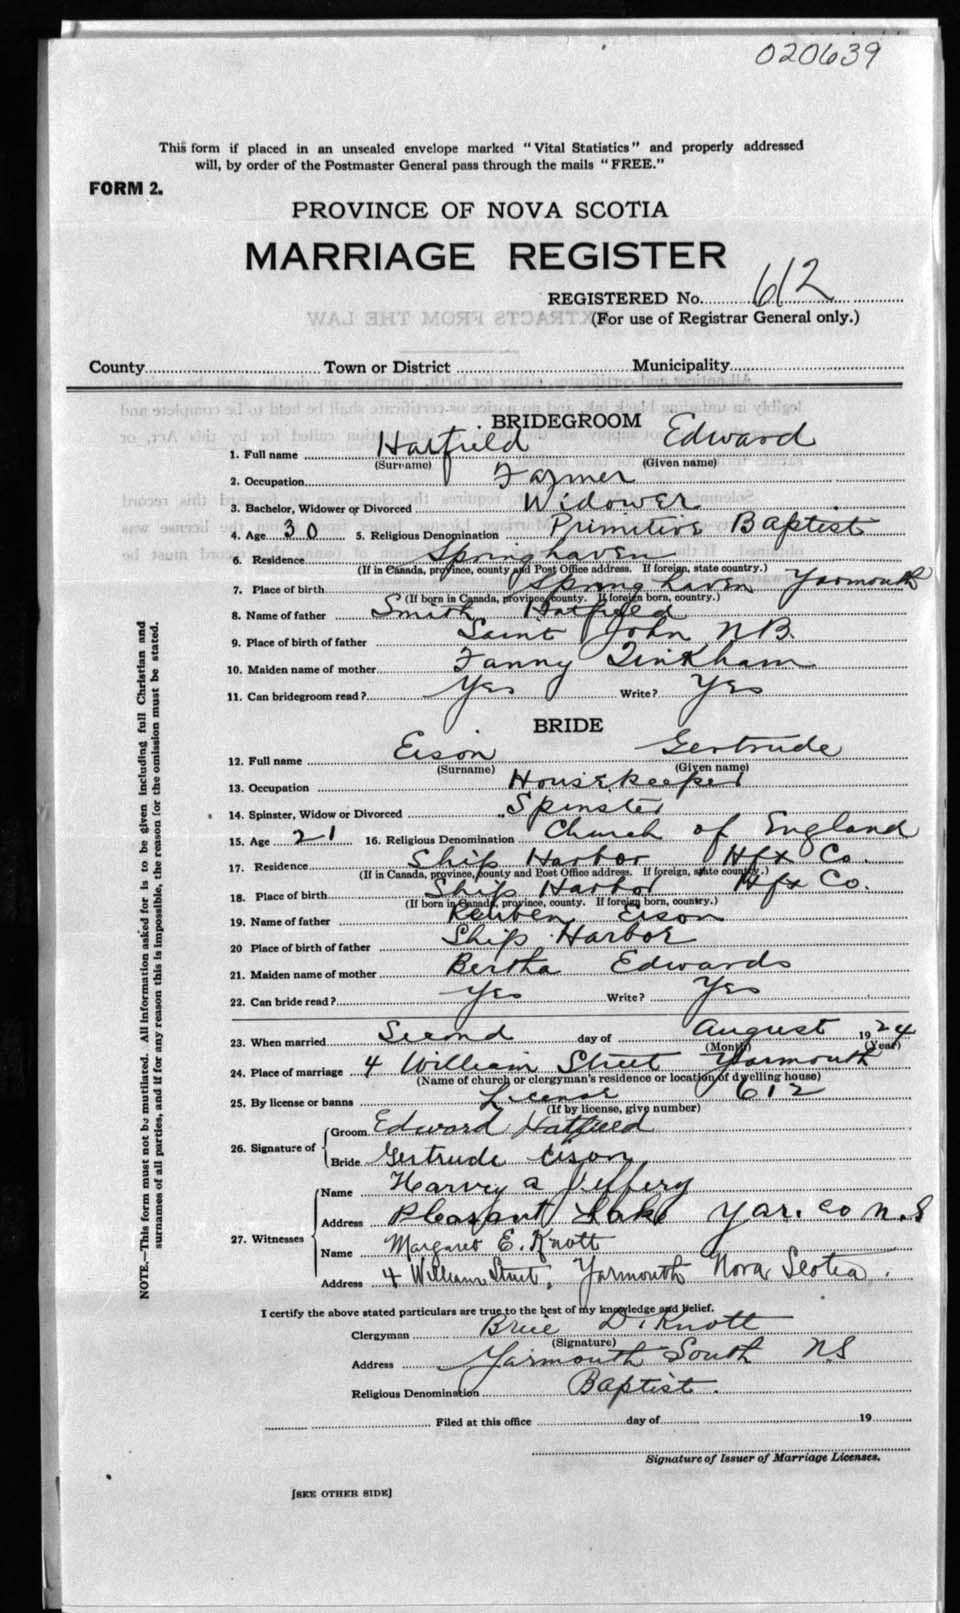 020639
This form if placed in an unsealed envelope marked "Vital Statistics" and properly addressed
will, by order of the Postmaster General pass through the mails "FREE."
FORM 2.
PROVINCE OF NOVA SCOTIA
MARRIAGE REGISTER
REGISTERED No. 612
(For use of Registrar General only.)
County Town or District Municipality
BRIDEGROOM
1. Full name Hatfield Edward
(Surname) (Given name)
2. Occupation Farmer
3. Bachelor, Widower or Divorced Widower
4. Age 30 5. Religious Denomination Primitive Baptist
6. Residence Springhaven
(If in Canada, province, county and Post Office address. If foreign, state country.)
7. Place of birth Springhaven Yarmouth
(If born in Canada, province, county. If foreign born, country.)
8. Name of father Smith Hatfield
9. Place of birth of father Saint John NB.
10. Maiden name of mother Fanny Tinkham
11. Can bridegroom read? Yes Write? Yes
BRIDE
12. Full name Eison Gertrude
(Surname) (Given name)
13. Occupation Housekeeper
14. Spinster, Widow or Divorced Spinster
15. Age 21 16. Religious Denomination Church of England
17. Residence Ship Harbor Hfx Co.
(If in Canada, province, county and Post Office address. If foreign, state country.)
18. Place of birth Ship Harbor Hfx Co.
(If born in Canada, province, county. If foreign born, country.)
19. Name of father Reuben Eison
20 Place of birth of father Ship Harbor
21. Maiden name of mother Bertha Edwards
22. Can bride read? Yes Write? Yes
23. When married Second day of August 1924
(Month) (Year)
24. Place of marriage 4 William Street Yarmouth
(Name of church or clergyman's residence or location of dwelling house)
25. By license or banns License 612
(If by license, give number)
26. Signature of Groom Edward Hatfield
Bride Gertrude Eison
27. Witnesses Name Harvey A Jeffery
Address Pleasant Lake Yar. Co N.S
Name Margaret E. Knott
Address 4 William Street, Yarmouth Nova Scotia.
I certify the above stated particulars are true to the best of my knowledge and belief.
Clergyman Brice D. Knott
(Signature)
Address Yarmouth South N.S
Religious Denomination Baptist.
Filed at this office day of 19
Signature of Issuer of Marriage Licenses.
[SEE OTHER SIDE]
NOTE.—This form must not be mutilated. All information asked for is to be given including full Christian and
surnames of all parties, and if for any reason this is impossible, the reason for the omission must be stated.